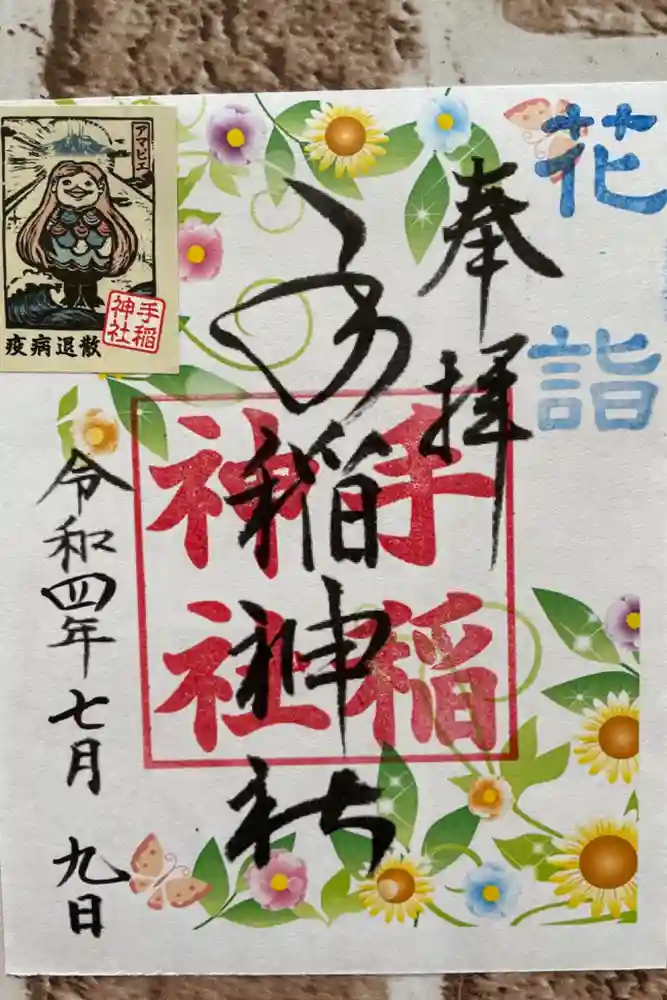 花詣
奉拝
手稲神社
手稲
神社
令和四年七月九日
アマビエ
手稲
神社
疫病退散